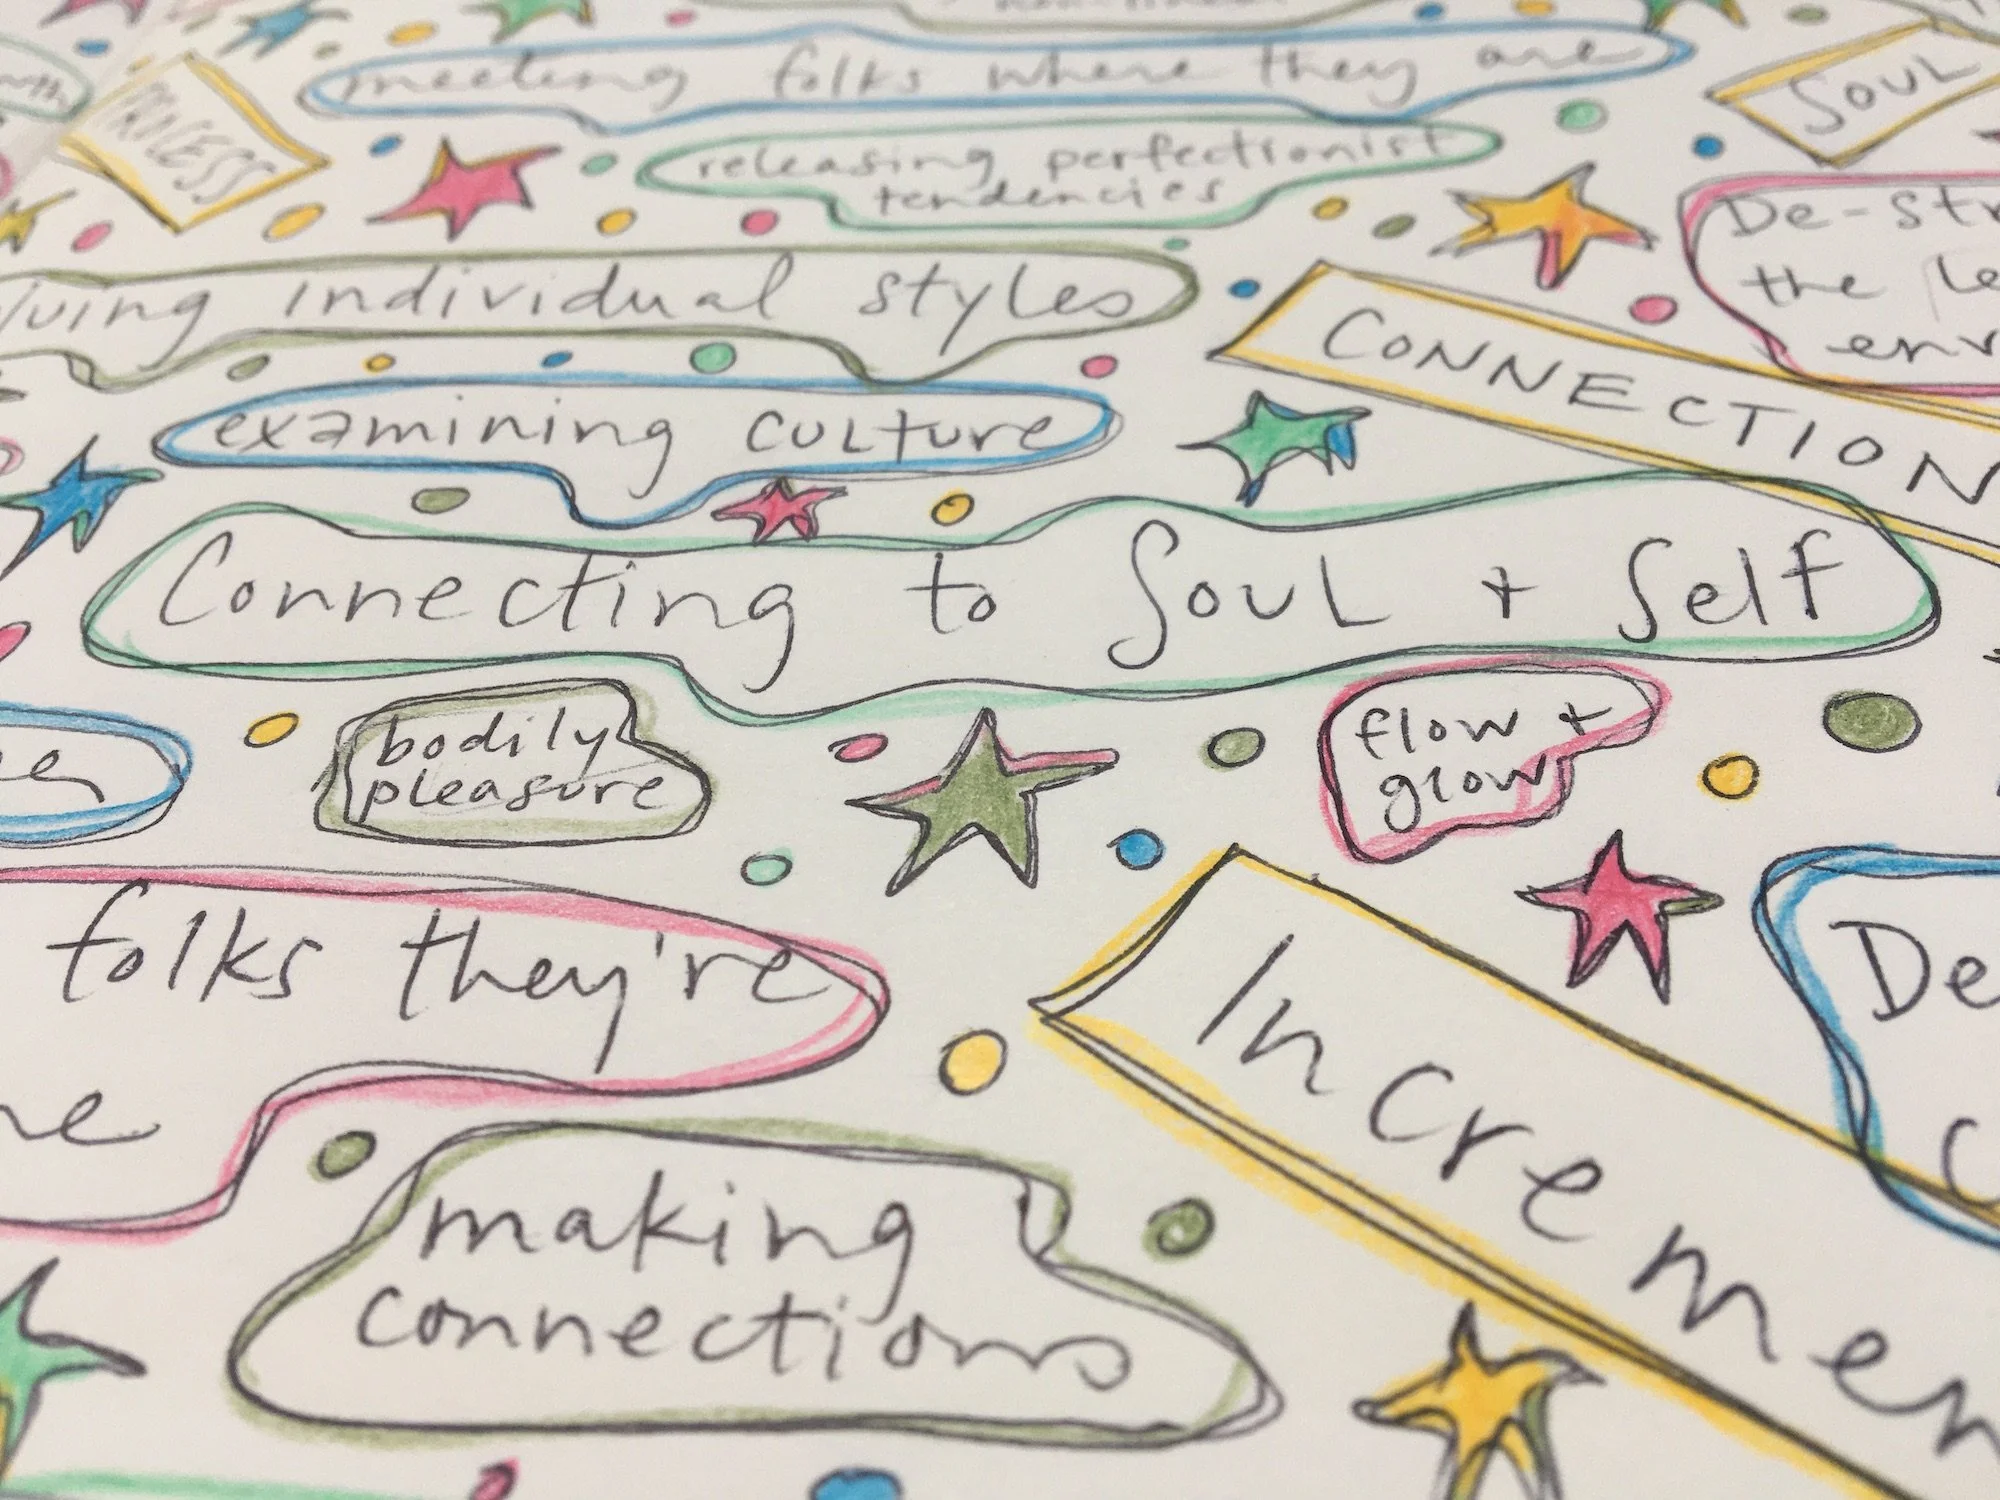 non-linear
meeting folks where they are
SOUL
PROCESS
releasing perfectionist
tendencies
De-str
the le
env
individual styles
CONNECTION
examining culture
Connecting to Soul + Self
bodily
pleasure
flow +
glow
folks they're
De
Incremen
making
connections